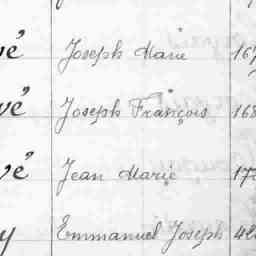 vé Joseph Marie 167
vé Joseph François 168
vé Jean Marie 170
y Emmanuel Joseph